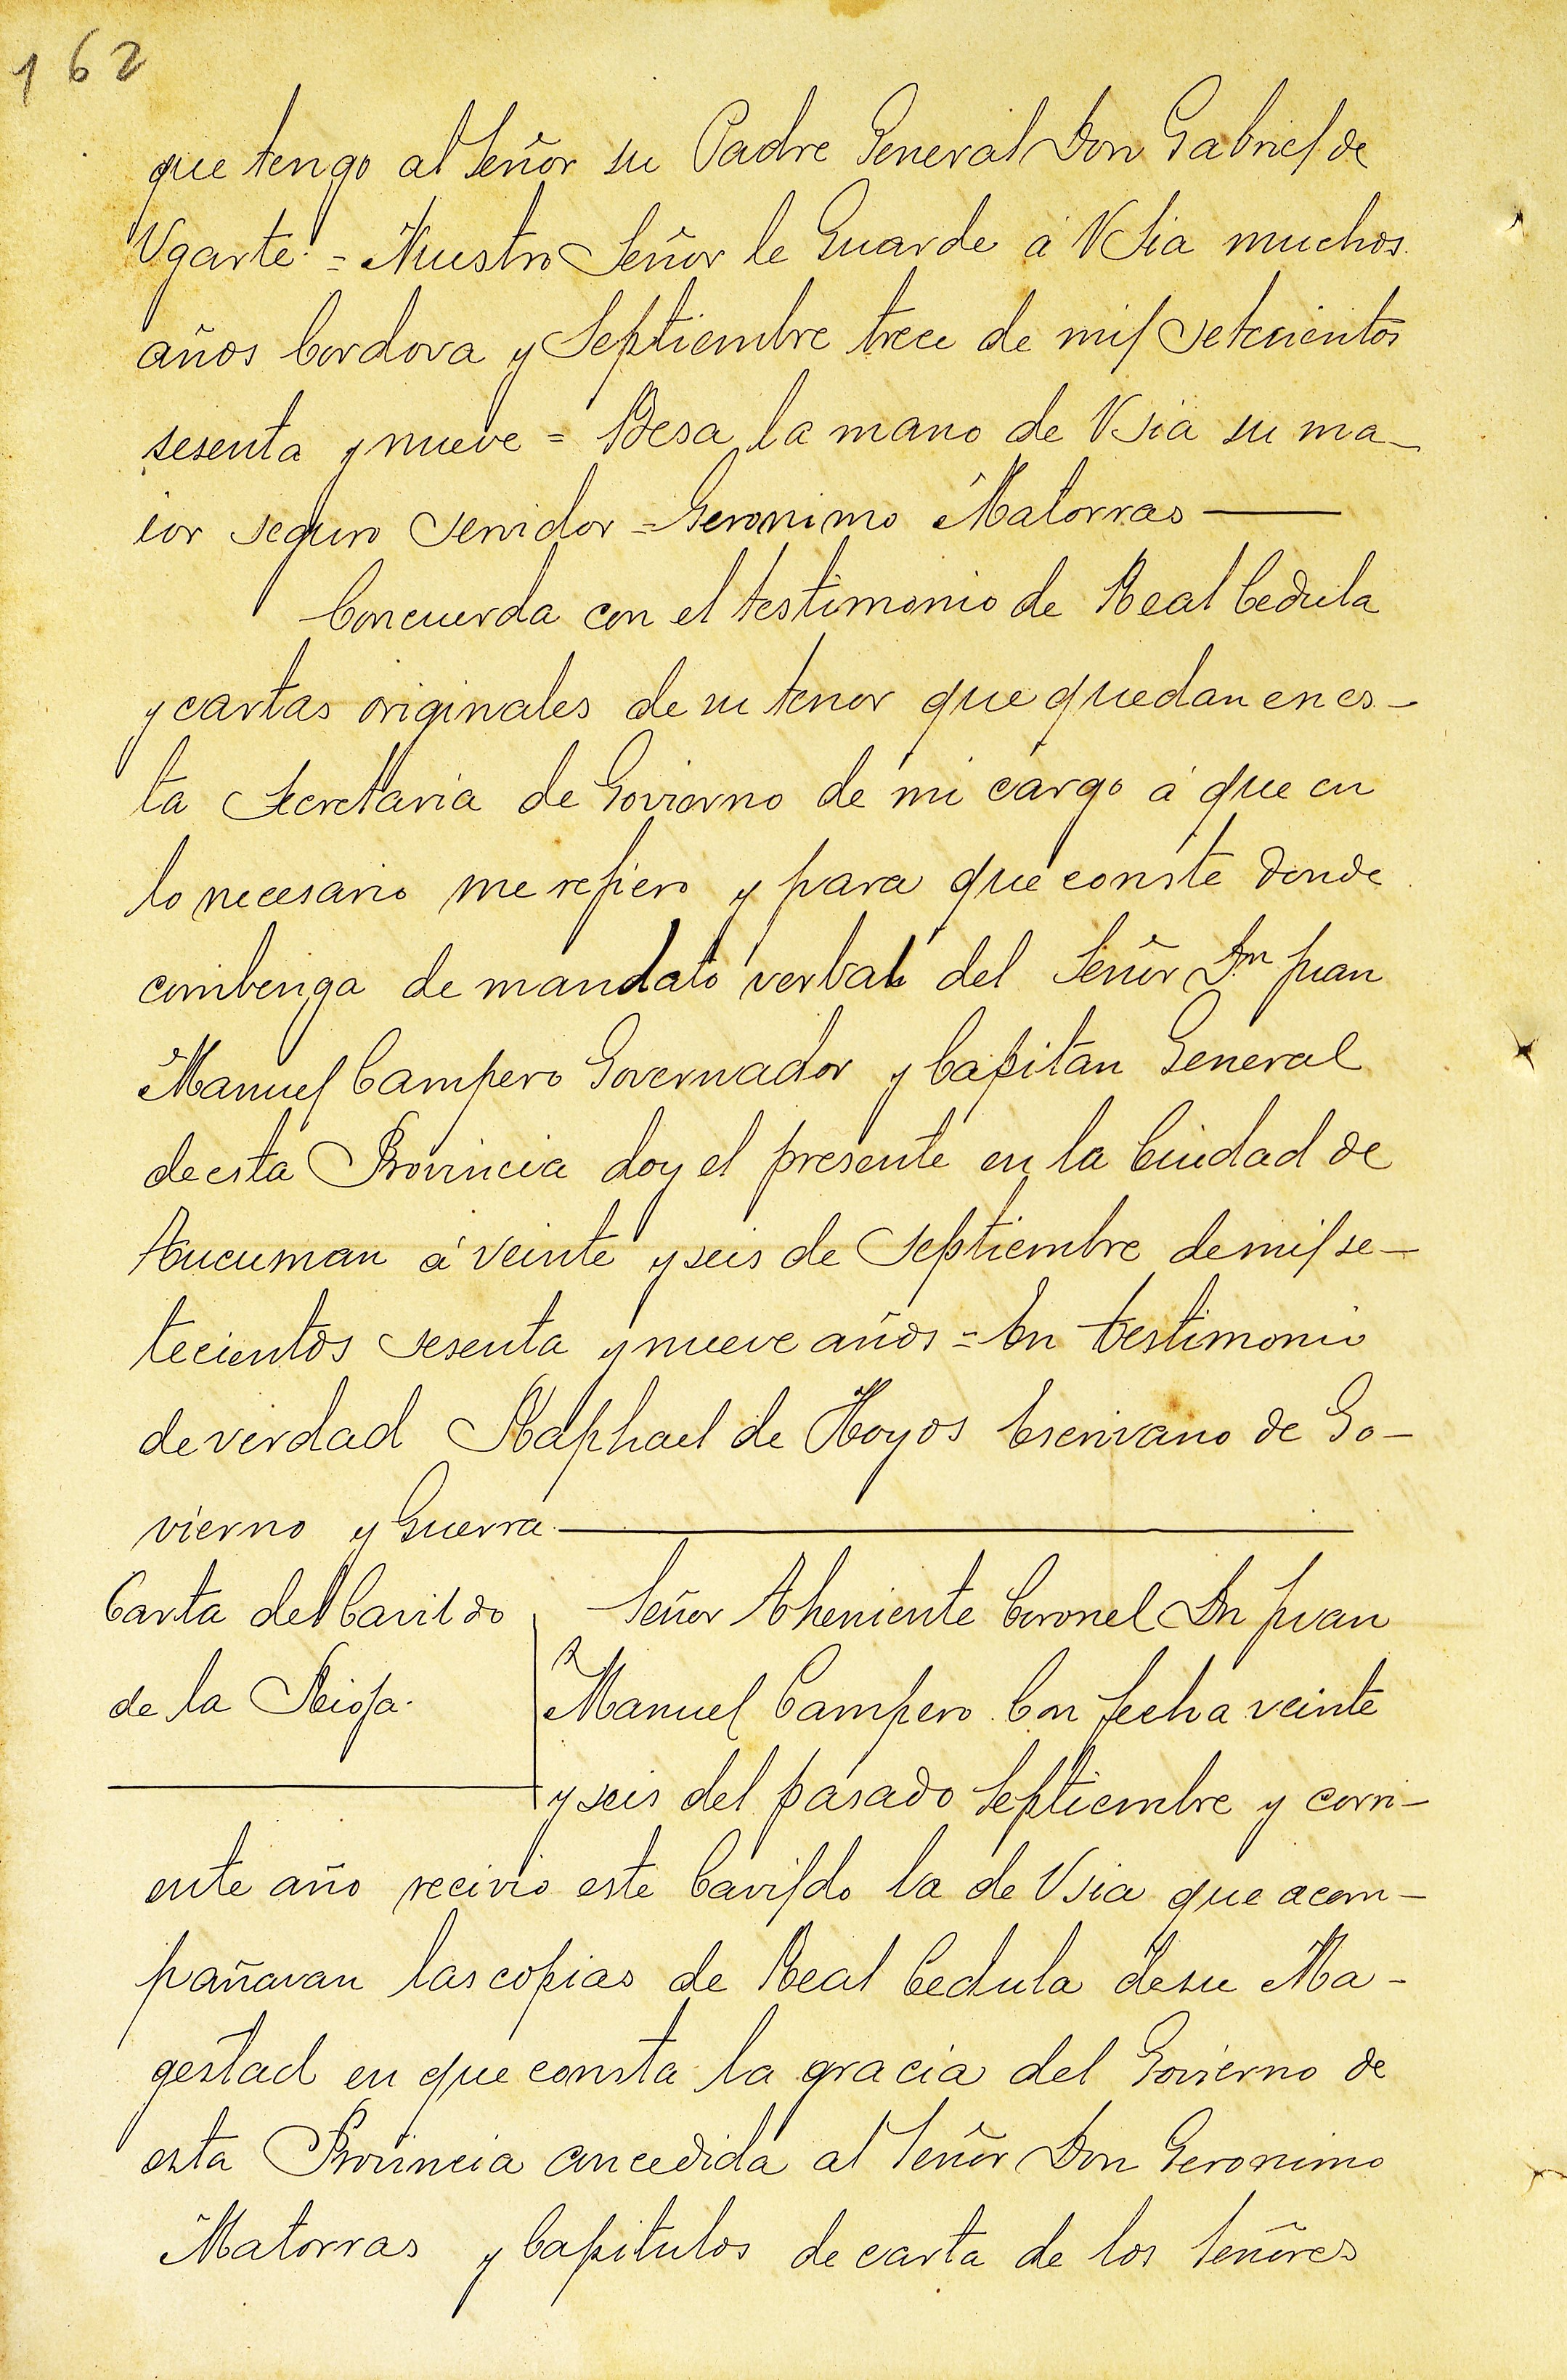 162
que tengo al Señor su Padre General Don Gabriel de
Ugarte = Nuestro Señor le Guarde á VSia muchos
años Cordova y Septiembre trece de mil Setecientos
sesenta y nueve = Besa la mano de Vsia su ma-
ior seguro servidor = Geronimo Matorras —
Concuerda con el testimonio de Real Cedula
y cartas originales de su tenor que quedan en es-
ta Secretaria de Govierno de mi cargo á que en
lo necesario me refiero y para que conste donde
combenga de mandato verbal del Señor Dn Juan
Manuel Campero Governador y Capitan General
de esta Provincia doy el presente en la Ciudad de
Tucuman á veinte y seis de Septiembre de mil se-
tecientos sesenta y nueve años = En testimonio
de verdad Raphael de Hoyos Escrivano de Go-
vierno y Guerra —
Carta del Cavildo
de la Rioja.
Señor Theniente Coronel Dn Juan
Manuel Campero Con fecha veinte
y seis del pasado Septiembre y corri-
ente año recivio este Cavildo la de Vsia que acom-
pañavan las copias de Real Cedula de su Ma-
gestad en que consta la gracia del Govierno de
esta Provincia concedida al Señor Don Geronimo
Matorras y Capitulos de carta de los Señores